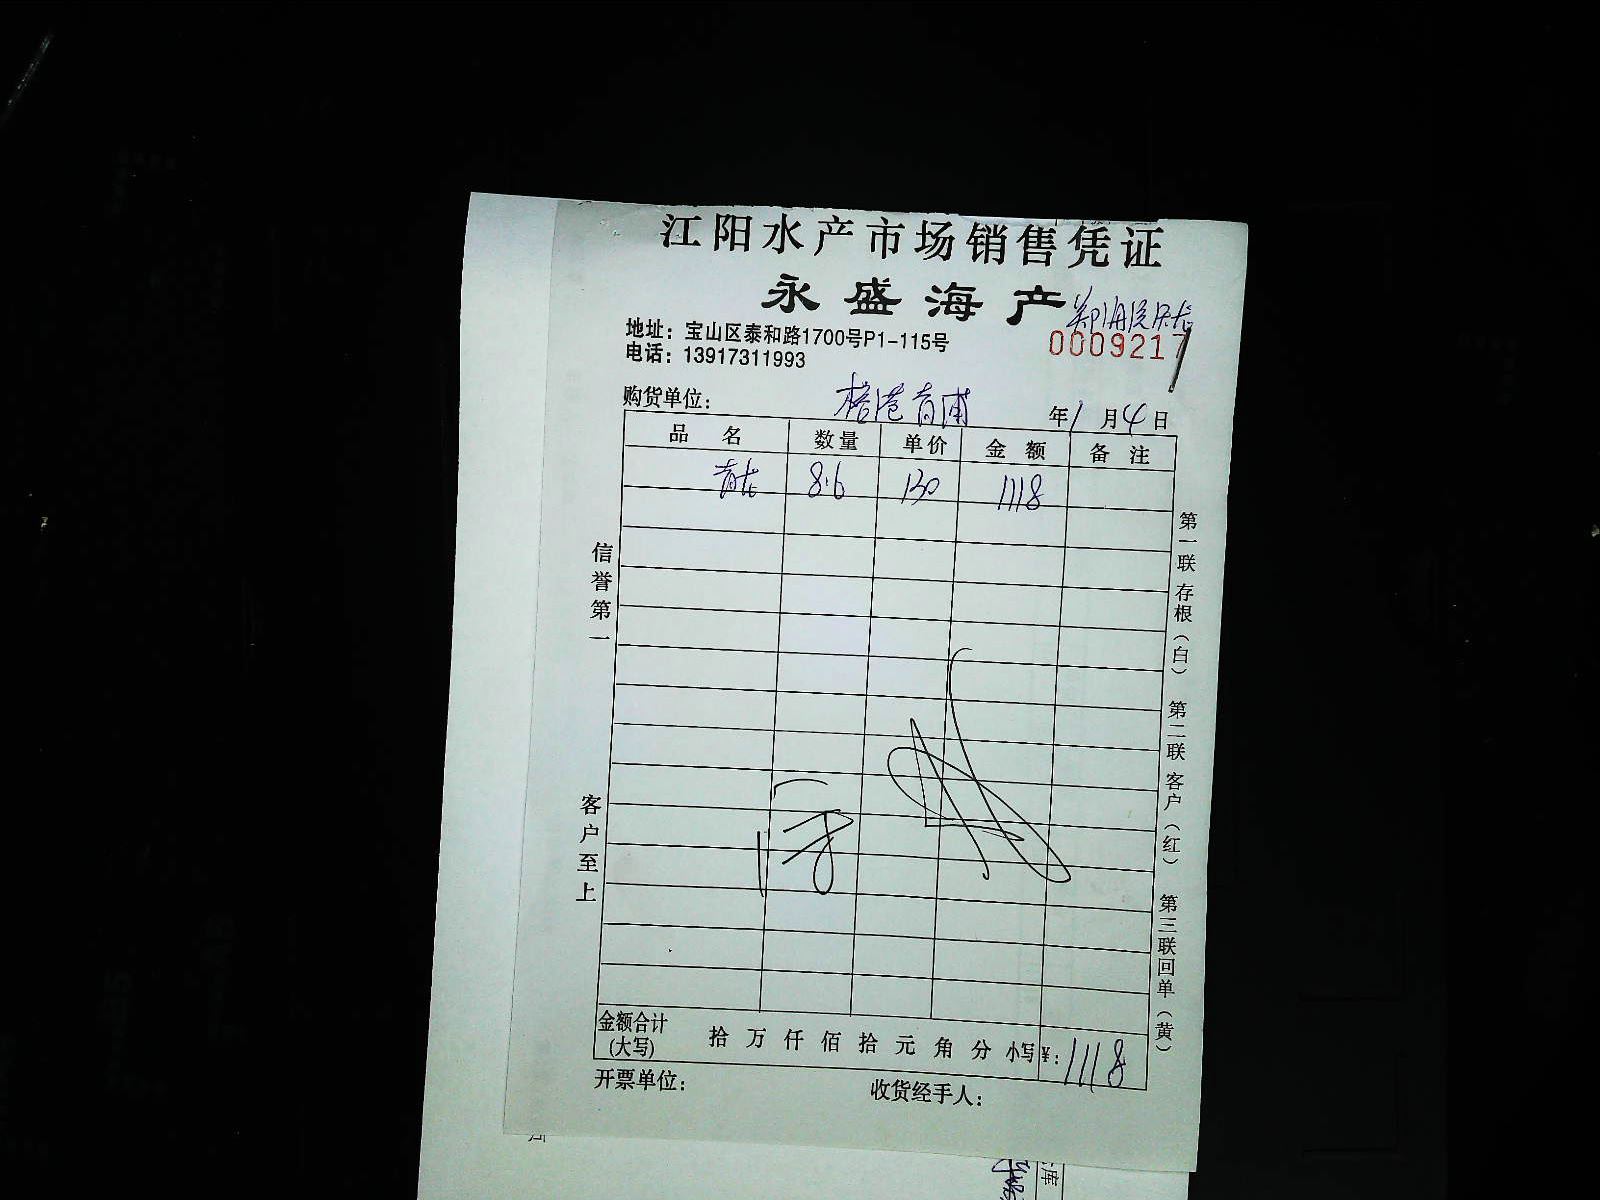 江阳水产市场销售凭证
永盛海产
地址：宝山区泰和路1700号P1-115号
电话：13917311993
0009217
购货单位： 榕港青浦 年1月4日
品名 数量 单价 金额 备注
青龙 8.6 130 1118
信誉第一
客户至上
第一联存根（白） 第二联客户（红） 第三联回单（黄）
金额合计(大写) 拾 万 仟 佰 拾 元 角 分 小写¥：1118
开票单位： 收货经手人：
库